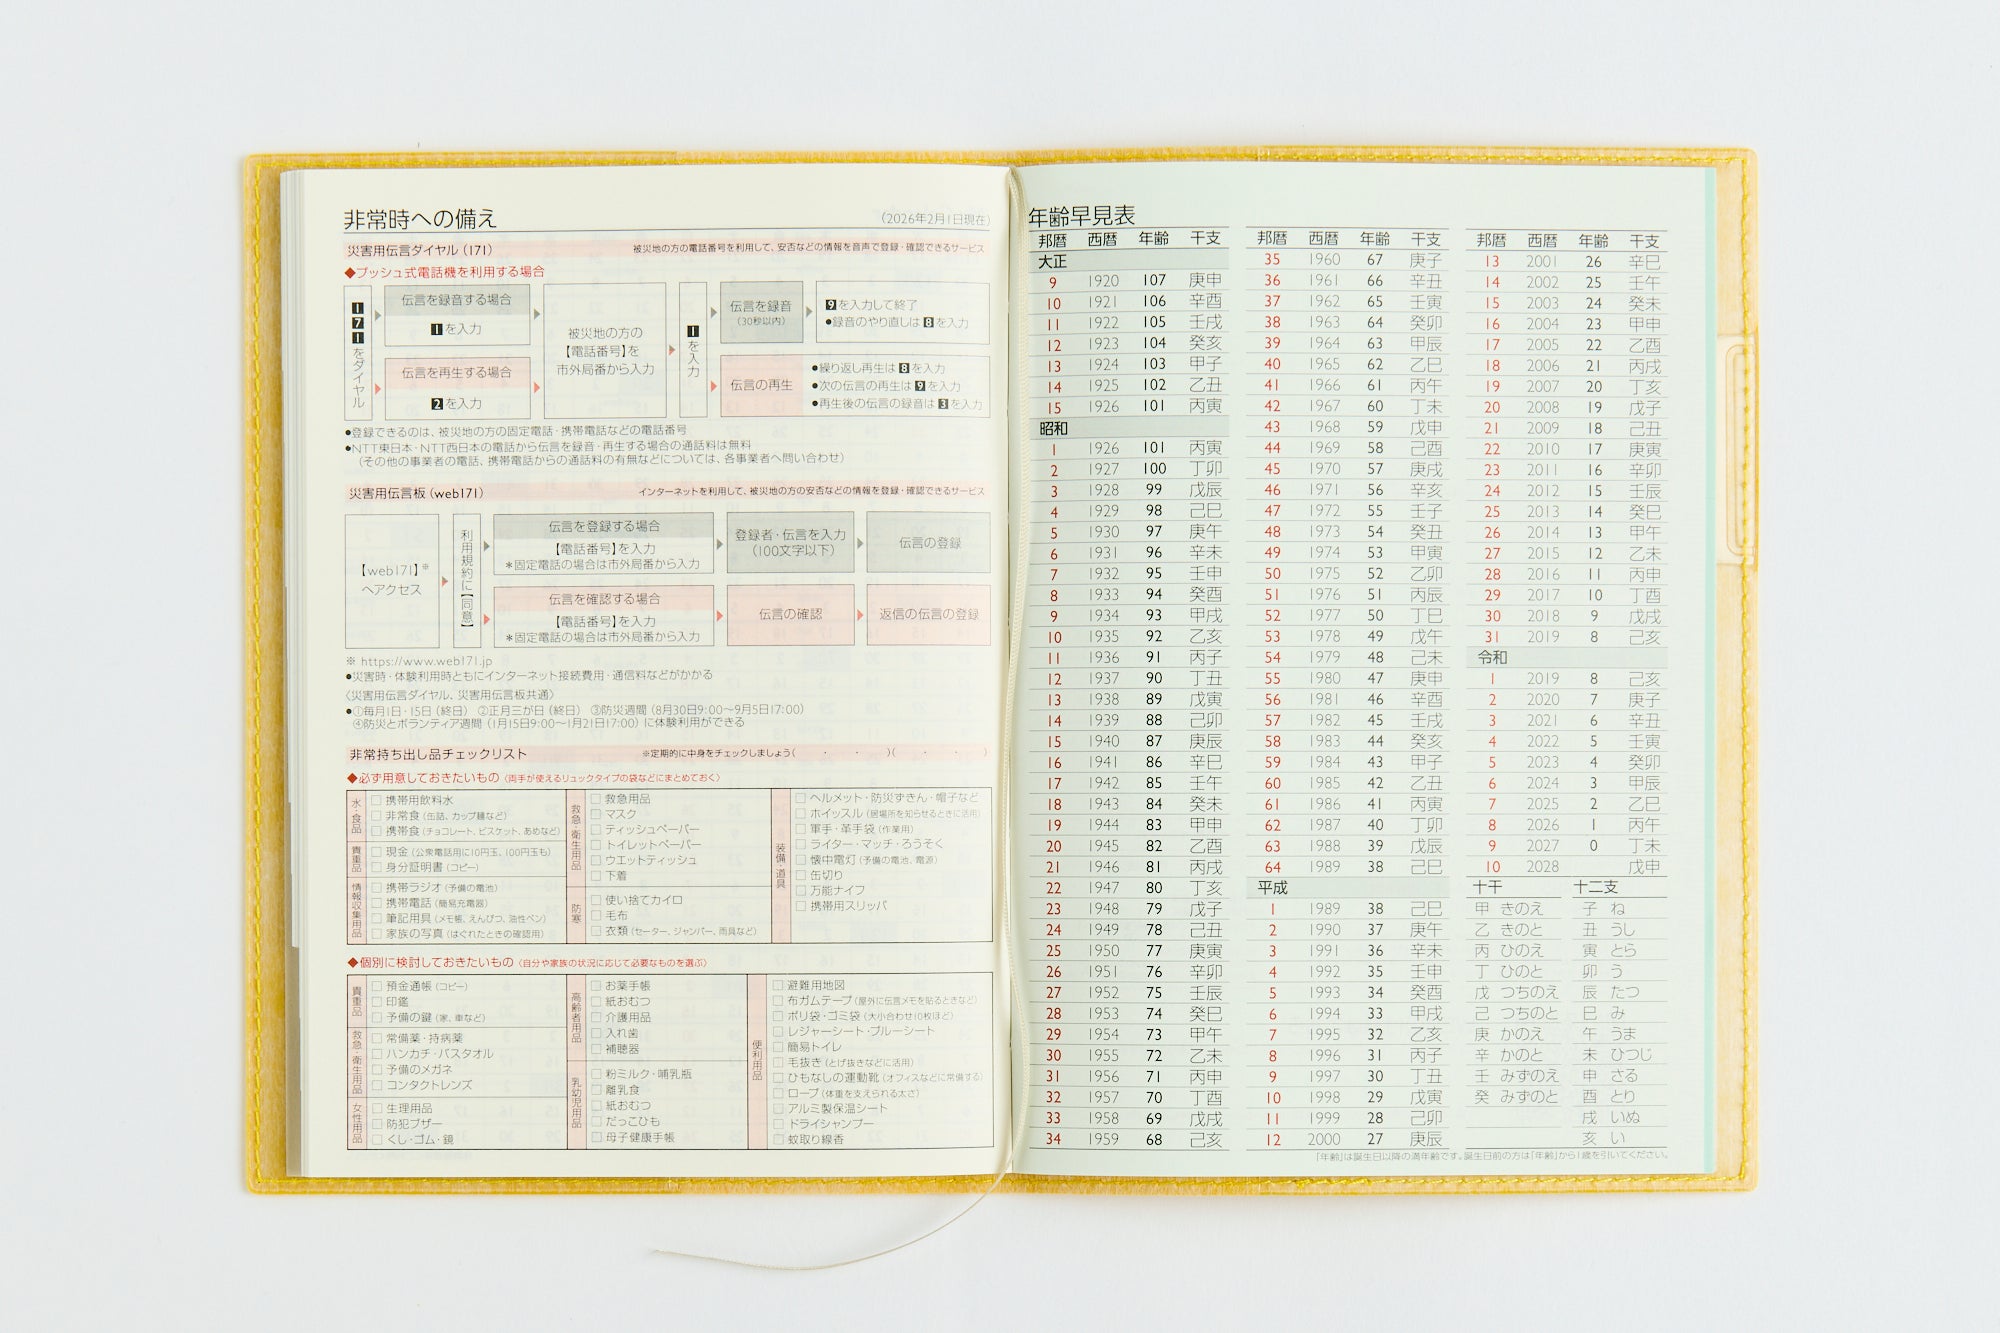 非常時への備え
(2026年2月1日現在)
災害用伝言ダイヤル(171)
被災地の方の電話番号を利用して、安否などの情報を音声で登録・確認できるサービス
◆プッシュ式電話機を利用する場合
171をダイヤル
伝言を録音する場合
1を入力
伝言を再生する場合
2を入力
被災地の方の
【電話番号】を
市外局番から入力
1を入力
伝言を録音
(30秒以内)
9を入力して終了
●録音のやり直しは8を入力
伝言の再生
●繰り返し再生は8を入力
●次の伝言の再生は9を入力
●再生後の伝言の録音は3を入力
●登録できるのは、被災地の方の固定電話・携帯電話などの電話番号
●NTT東日本・NTT西日本の電話から伝言を録音・再生する場合の通話料は無料
(その他の事業者の電話、携帯電話からの通話料の有無などについては、各事業者へ問い合わせ)
災害用伝言板(web171)
インターネットを利用して、被災地の方の安否などの情報を登録・確認できるサービス
【web171】※
へアクセス
利用規約に【同意】
伝言を登録する場合
【電話番号】を入力
*固定電話の場合は市外局番から入力
登録者・伝言を入力
(100文字以下)
伝言の登録
伝言を確認する場合
【電話番号】を入力
*固定電話の場合は市外局番から入力
伝言の確認
返信の伝言の登録
※ https://www.web171.jp
●災害時・体験利用時ともにインターネット接続費用・通信料などがかかる
〈災害用伝言ダイヤル、災害用伝言板共通〉
●①毎月1日・15日(終日) ②正月三が日(終日) ③防災週間(8月30日9:00〜9月5日17:00)
④防災とボランティア週間(1月15日9:00〜1月21日17:00)に体験利用ができる
非常持ち出し品チェックリスト
※定期的に中身をチェックしましょう( ・ ・ )( ・ ・ )
◆必ず用意しておきたいもの(両手が使えるリュックタイプの袋などにまとめておく)
水・食品
□携帯用飲料水
□非常食(缶詰、カップ麺など)
□携帯食(チョコレート、ビスケット、あめなど)
貴重品
□現金(公衆電話用に10円玉、100円玉も)
□身分証明書(コピー)
情報収集用品
□携帯ラジオ(予備の電池)
□携帯電話(簡易充電器)
□筆記用具(メモ帳、えんぴつ、油性ペン)
□家族の写真(はぐれたときの確認用)
救急・衛生用品
□救急用品
□マスク
□ティッシュペーパー
□トイレットペーパー
□ウエットティッシュ
□下着
防寒
□使い捨てカイロ
□毛布
□衣類(セーター、ジャンパー、雨具など)
装備・道具
□ヘルメット・防災ずきん・帽子など
□ホイッスル(居場所を知らせるときに活用)
□軍手・革手袋(作業用)
□ライター・マッチ・ろうそく
□懐中電灯(予備の電池、電源)
□缶切り
□万能ナイフ
□携帯用スリッパ
◆個別に検討しておきたいもの(自分や家族の状況に応じて必要なものを選ぶ)
貴重品
□預金通帳(コピー)
□印鑑
□予備の鍵(家、車など)
救急・衛生用品
□常備薬・持病薬
□ハンカチ・バスタオル
□予備のメガネ
□コンタクトレンズ
女性用品
□生理用品
□防犯ブザー
□くし・ゴム・鏡
高齢者用品
□お薬手帳
□紙おむつ
□介護用品
□入れ歯
□補聴器
乳幼児用品
□粉ミルク・哺乳瓶
□離乳食
□紙おむつ
□だっこひも
□母子健康手帳
便利用品
□避難用地図
□布ガムテープ(屋外に伝言メモを貼るときなど)
□ポリ袋・ゴミ袋(大小合わせ10枚ほど)
□レジャーシート・ブルーシート
□簡易トイレ
□毛抜き(とげ抜きなどに活用)
□ひもなしの運動靴(オフィスなどに常備する)
□ロープ(体重を支えられる太さ)
□アルミ製保温シート
□ドライシャンプー
□蚊取り線香
年齢早見表
邦暦 西暦 年齢 干支
大正
9 1920 107 庚申
10 1921 106 辛酉
11 1922 105 壬戌
12 1923 104 癸亥
13 1924 103 甲子
14 1925 102 乙丑
15 1926 101 丙寅
昭和
1 1926 101 丙寅
2 1927 100 丁卯
3 1928 99 戊辰
4 1929 98 己巳
5 1930 97 庚午
6 1931 96 辛未
7 1932 95 壬申
8 1933 94 癸酉
9 1934 93 甲戌
10 1935 92 乙亥
11 1936 91 丙子
12 1937 90 丁丑
13 1938 89 戊寅
14 1939 88 己卯
15 1940 87 庚辰
16 1941 86 辛巳
17 1942 85 壬午
18 1943 84 癸未
19 1944 83 甲申
20 1945 82 乙酉
21 1946 81 丙戌
22 1947 80 丁亥
23 1948 79 戊子
24 1949 78 己丑
25 1950 77 庚寅
26 1951 76 辛卯
27 1952 75 壬辰
28 1953 74 癸巳
29 1954 73 甲午
30 1955 72 乙未
31 1956 71 丙申
32 1957 70 丁酉
33 1958 69 戊戌
34 1959 68 己亥
邦暦 西暦 年齢 干支
35 1960 67 庚子
36 1961 66 辛丑
37 1962 65 壬寅
38 1963 64 癸卯
39 1964 63 甲辰
40 1965 62 乙巳
41 1966 61 丙午
42 1967 60 丁未
43 1968 59 戊申
44 1969 58 己酉
45 1970 57 庚戌
46 1971 56 辛亥
47 1972 55 壬子
48 1973 54 癸丑
49 1974 53 甲寅
50 1975 52 乙卯
51 1976 51 丙辰
52 1977 50 丁巳
53 1978 49 戊午
54 1979 48 己未
55 1980 47 庚申
56 1981 46 辛酉
57 1982 45 壬戌
58 1983 44 癸亥
59 1984 43 甲子
60 1985 42 乙丑
61 1986 41 丙寅
62 1987 40 丁卯
63 1988 39 戊辰
64 1989 38 己巳
平成
1 1989 38 己巳
2 1990 37 庚午
3 1991 36 辛未
4 1992 35 壬申
5 1993 34 癸酉
6 1994 33 甲戌
7 1995 32 乙亥
8 1996 31 丙子
9 1997 30 丁丑
10 1998 29 戊寅
11 1999 28 己卯
12 2000 27 庚辰
邦暦 西暦 年齢 干支
13 2001 26 辛巳
14 2002 25 壬午
15 2003 24 癸未
16 2004 23 甲申
17 2005 22 乙酉
18 2006 21 丙戌
19 2007 20 丁亥
20 2008 19 戊子
21 2009 18 己丑
22 2010 17 庚寅
23 2011 16 辛卯
24 2012 15 壬辰
25 2013 14 癸巳
26 2014 13 甲午
27 2015 12 乙未
28 2016 11 丙申
29 2017 10 丁酉
30 2018 9 戊戌
31 2019 8 己亥
令和
1 2019 8 己亥
2 2020 7 庚子
3 2021 6 辛丑
4 2022 5 壬寅
5 2023 4 癸卯
6 2024 3 甲辰
7 2025 2 乙巳
8 2026 1 丙午
9 2027 0 丁未
10 2028 戊申
十干
甲 きのえ
乙 きのと
丙 ひのえ
丁 ひのと
戊 つちのえ
己 つちのと
庚 かのえ
辛 かのと
壬 みずのえ
癸 みずのと
十二支
子 ね
丑 うし
寅 とら
卯 う
辰 たつ
巳 み
午 うま
未 ひつじ
申 さる
酉 とり
戌 いぬ
亥 い
「年齢」は誕生日以降の満年齢です。誕生日前の方は「年齢」から1歳を引いてください。